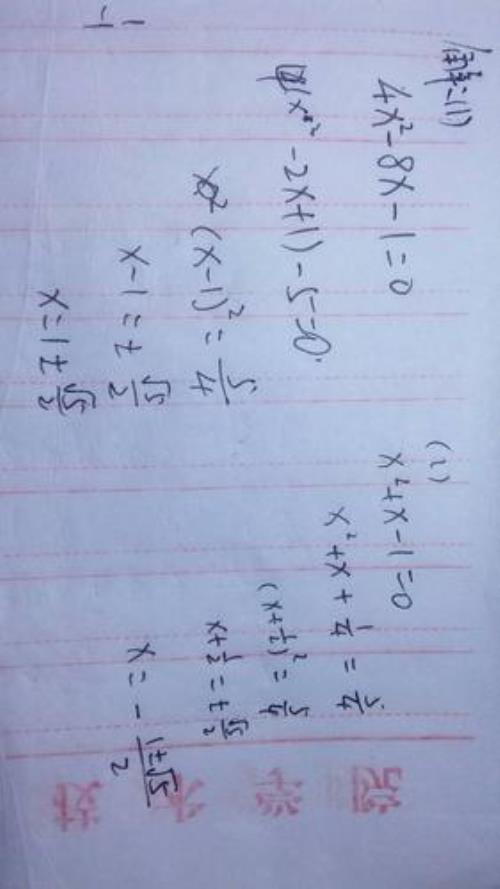 解:(1)
4x²-8x-1=0
4(x²-2x+1)-5=0
(x-1)²=5/4
x-1=±√5/2
x=1±√5/2
(2)
x²+x-1=0
x²+x+1/4=5/4
(x+1/2)²=5/4
x+1/2=±√5/2
x=-(1±√5)/2